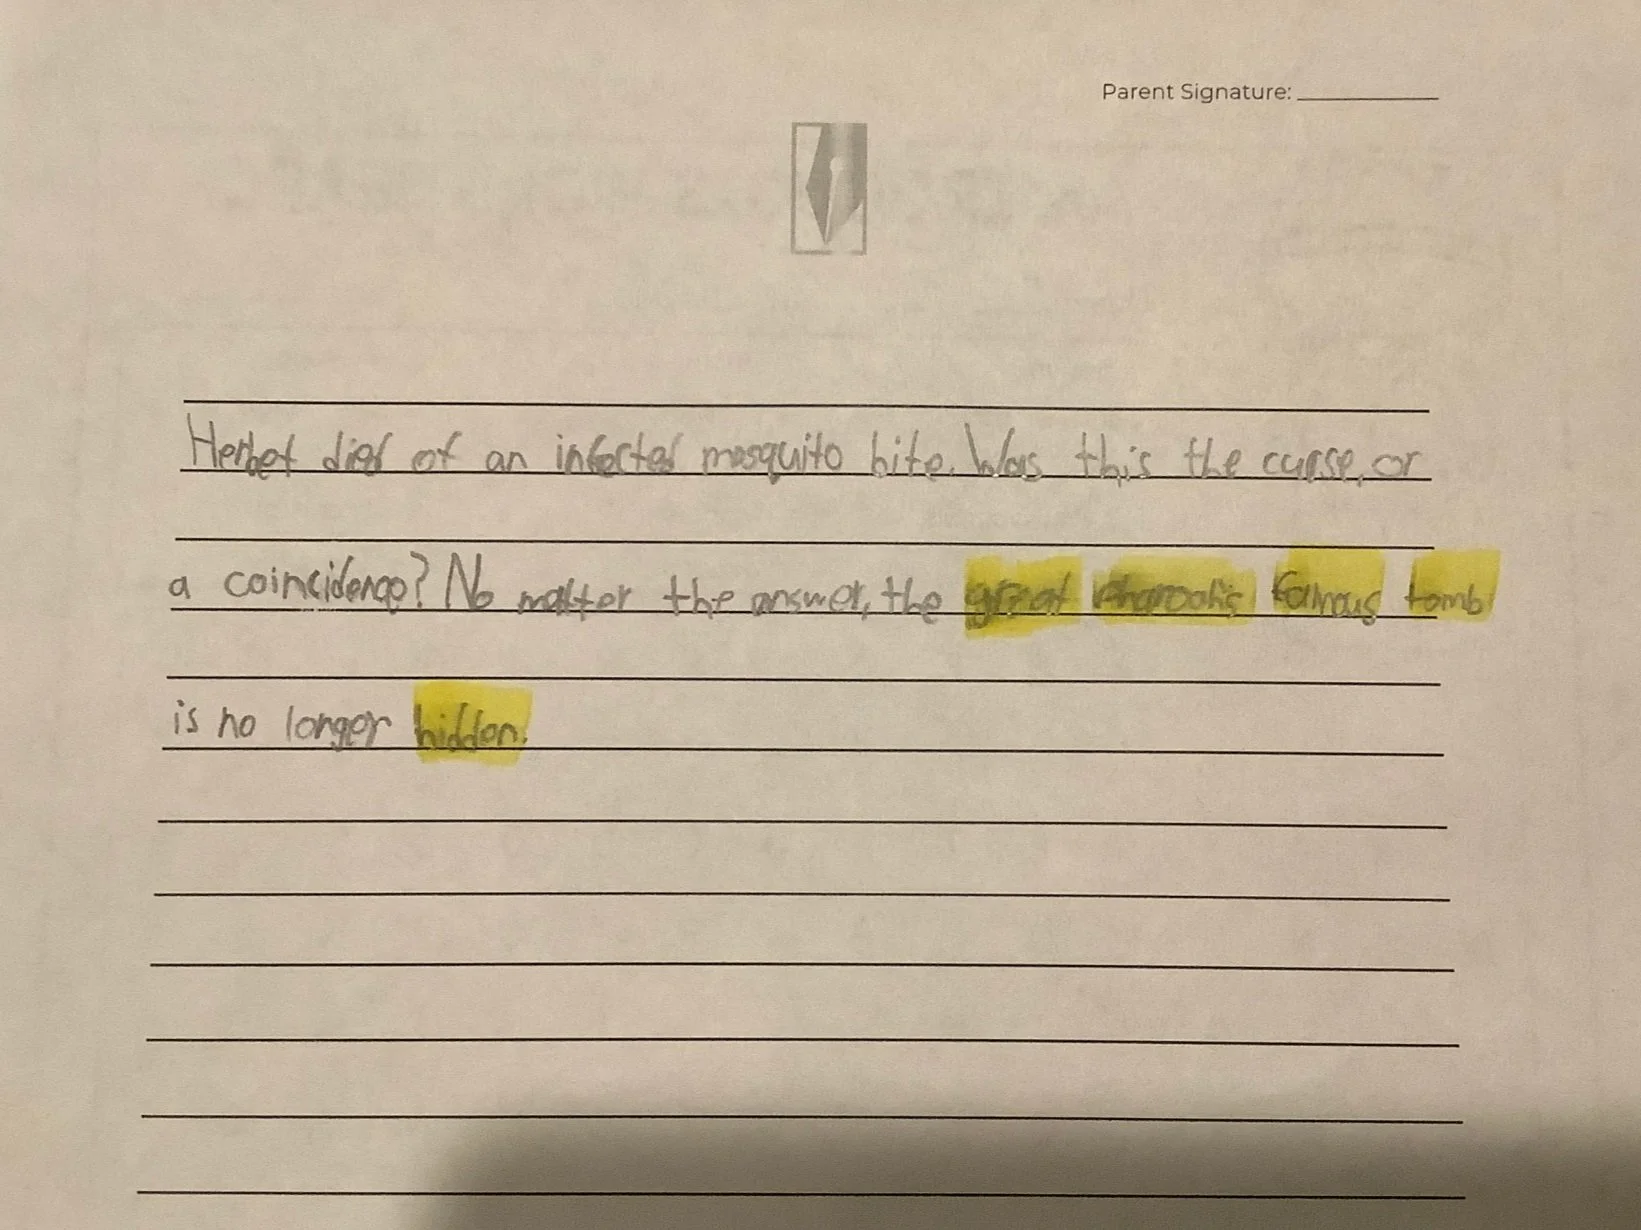 Parent Signature:
Herbet died of an infected mosquito bite. Was this the curse, or
a coincidence? No matter the answer, the great pharoah's famous tomb
is no longer hidden.